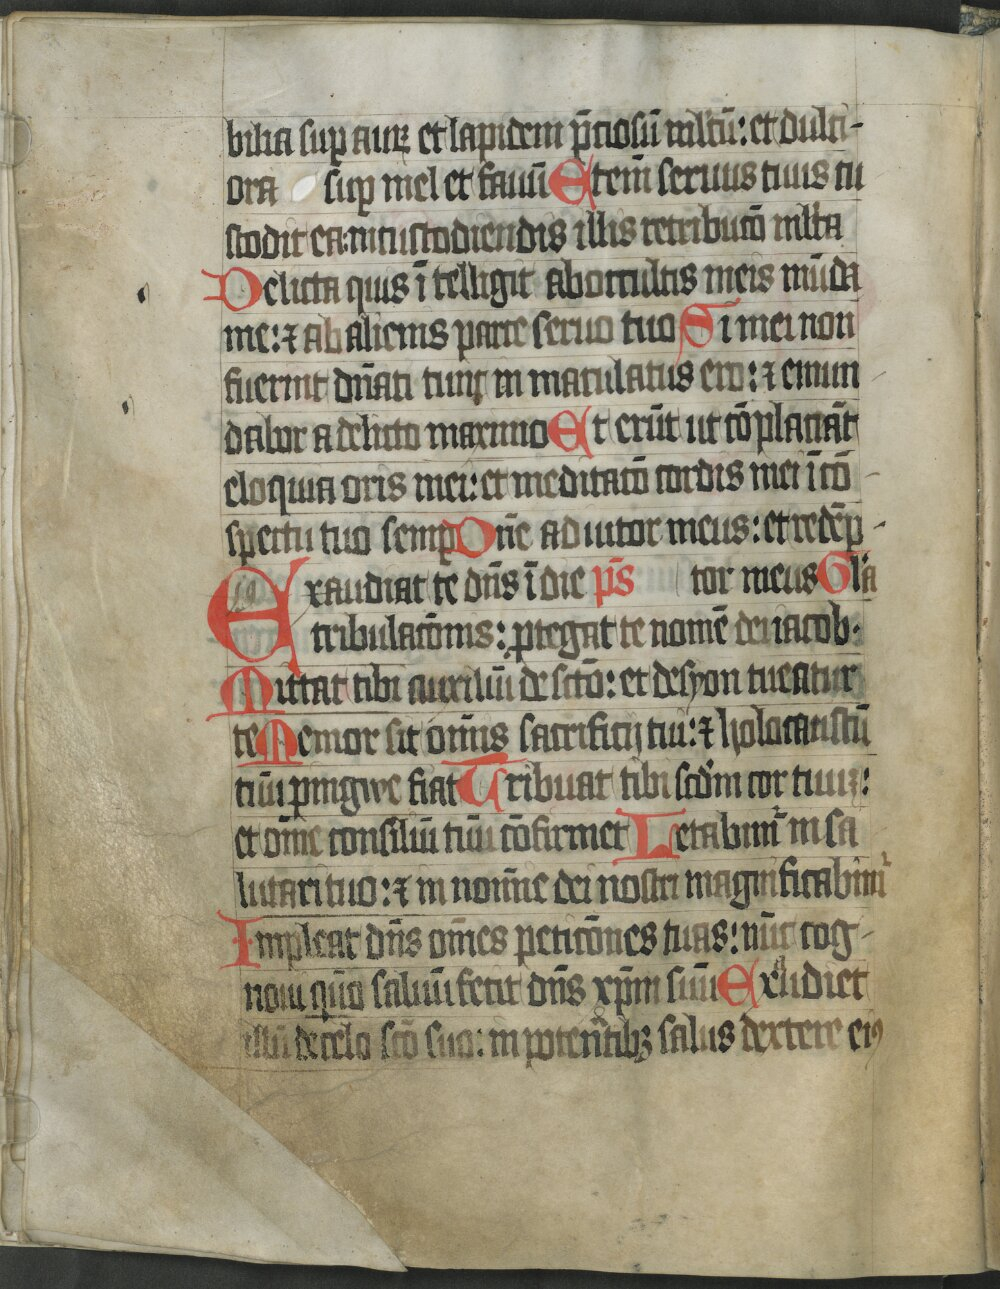 bilia sup auꝝ et lapidem p̄ciosū mltū: et dulci-
ora sup mel et fauū Etem̄ seruus tuus cu
stodit ea: in custodiendis illis retribucō mlta
Delicta quis ītelligit ab occultis meis mūda
me: ⁊ ab alienis parce seruo tuo Si mei non
fuerint dn̄ati tūc in maculatus ero: ⁊ emun
dabor a delicto maximo Et erūt ut cōplaceāt
eloquia oris mei: et meditacō cordis mei ī cō
spectu tuo semp Dn̄e adiutor meus: et redēp-
Exaudiat te dn̄s ī die ps̄ tor meus Gl̄a
tribulacōnis: ꝓtegat te nomē dei iacob.
Mittat tibi auxiliū de sctō: et de syon tueatur
te Memor sit om̄is sacrificij tui: ⁊ holocaustū
tuū pingwe fiat Tribuat tibi scd̄m cor tuū:
et om̄e consiliū tuū cōfirmet Letabimꝰ in sa
lutari tuo: ⁊ in noīne dei nostri magnificabimꝰ
Impleat dn̄s om̄es peticōnes tuas: nūc cog-
noui qūo saluū fecit dn̄s xp̄m suū Exaudiet
illū de celo scō suo: in potentatibꝫ salus dextere eiꝰ